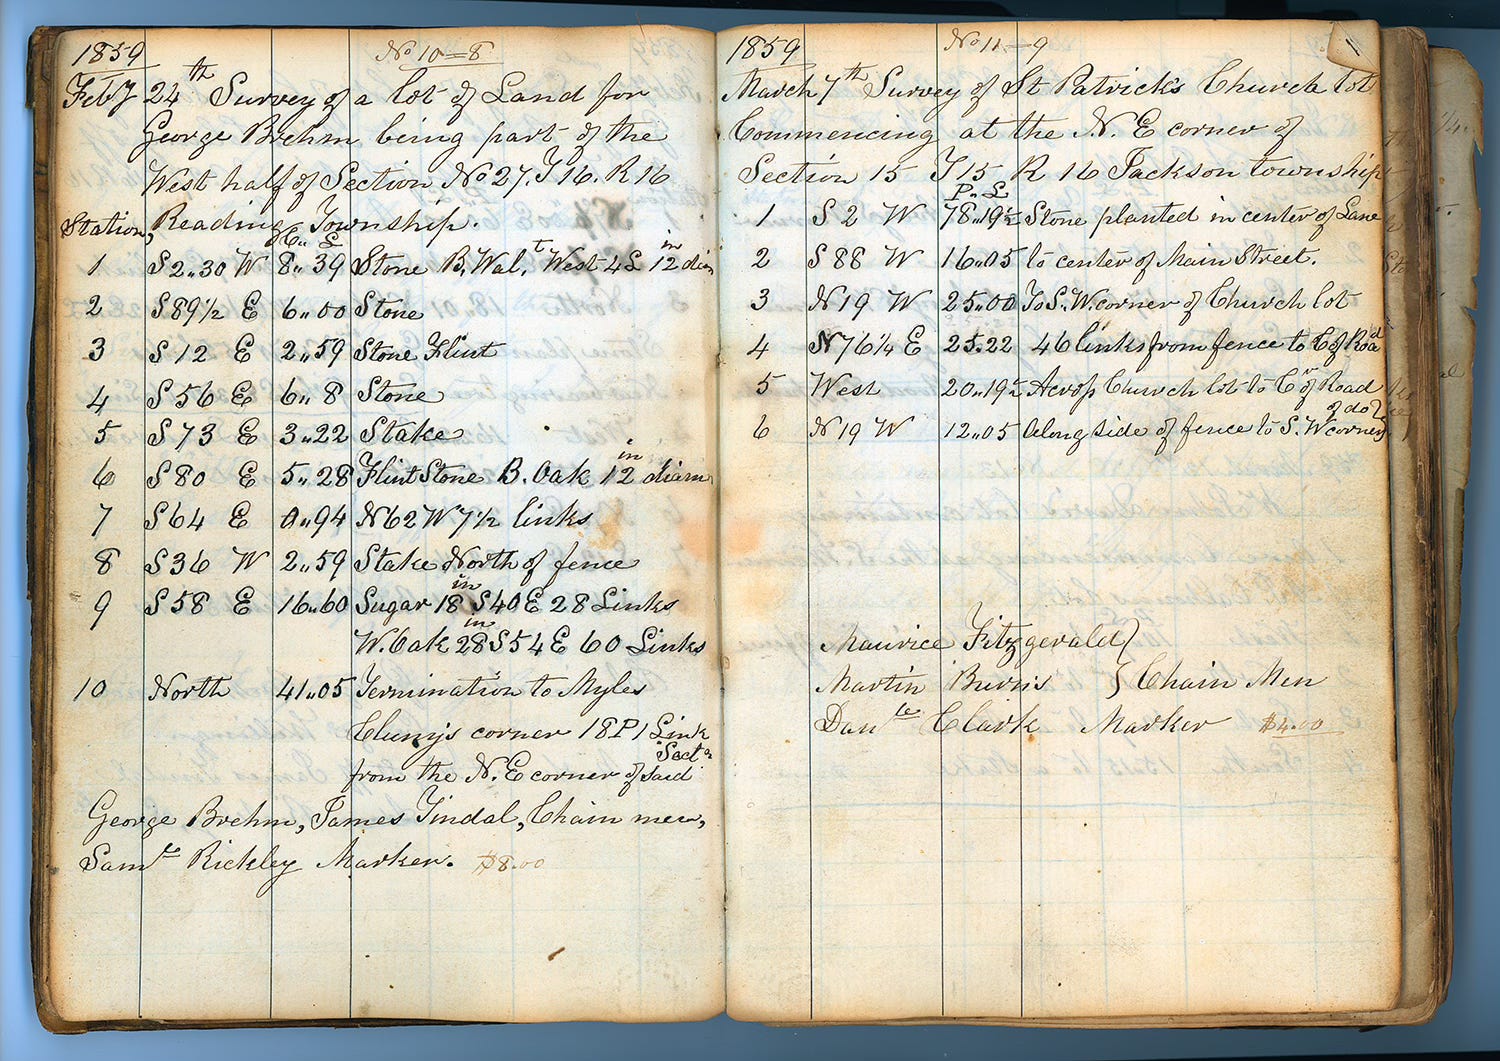 1859
No 10=8
Feb'y 24th Survey of a lot of Land for
George Brehm being part of the
West half of Section No 27. T 16. R 16
Station, Reading Township.
Ch,, L
1 S 2,,30 W 8,,39 Stone B. Wal,t West 4 L 12 in diam
2 S 89 1/2 E 6,,00 Stone
3 S 12 E 2,,59 Stone Flint
4 S 56 E 6,,8 Stone
5 S 73 E 3,,22 Stake
6 S 80 E 5,,28 Flint Stone B. Oak 12 in diam
7 S 64 E 0,,94 N 62 W 7 1/2 links
8 S 36 W 2,,59 Stake North of fence
9 S 58 E 16,,60 Sugar 18 in S 40 E 28 Links
W. Oak 28 in S 54 E 60 Links
10 North 41,,05 Termination to Myles
Clunys corner 18 P 1 Link
from the N. E corner of said Sectn
George Brehm, James Tindal, Chain men,
Samle Rickley Marker. $8.00
1859
No 11=9
March 7th Survey of St Patrick's Church lot
Commencing at the N. E corner of
Section 15 T 15 R 16 Jackson township
P,, L
1 S 2 W 78,,19 1/2 Stone planted in center of Lane
2 S 88 W 16,,05 to center of Main Street.
3 N 19 W 25,,00 To S. W. corner of Church lot
4 N 76 1/4 E 25.22 46 links from fence to C of Road
5 West 20,,19 1/2 Across Church lot to Cr of Road
6 N 19 W 12,,05 along side of fence to S. W corner of do
Maurice Fitzgerald }
Martin Burns } Chain Men
Danle Clark Marker $4.00